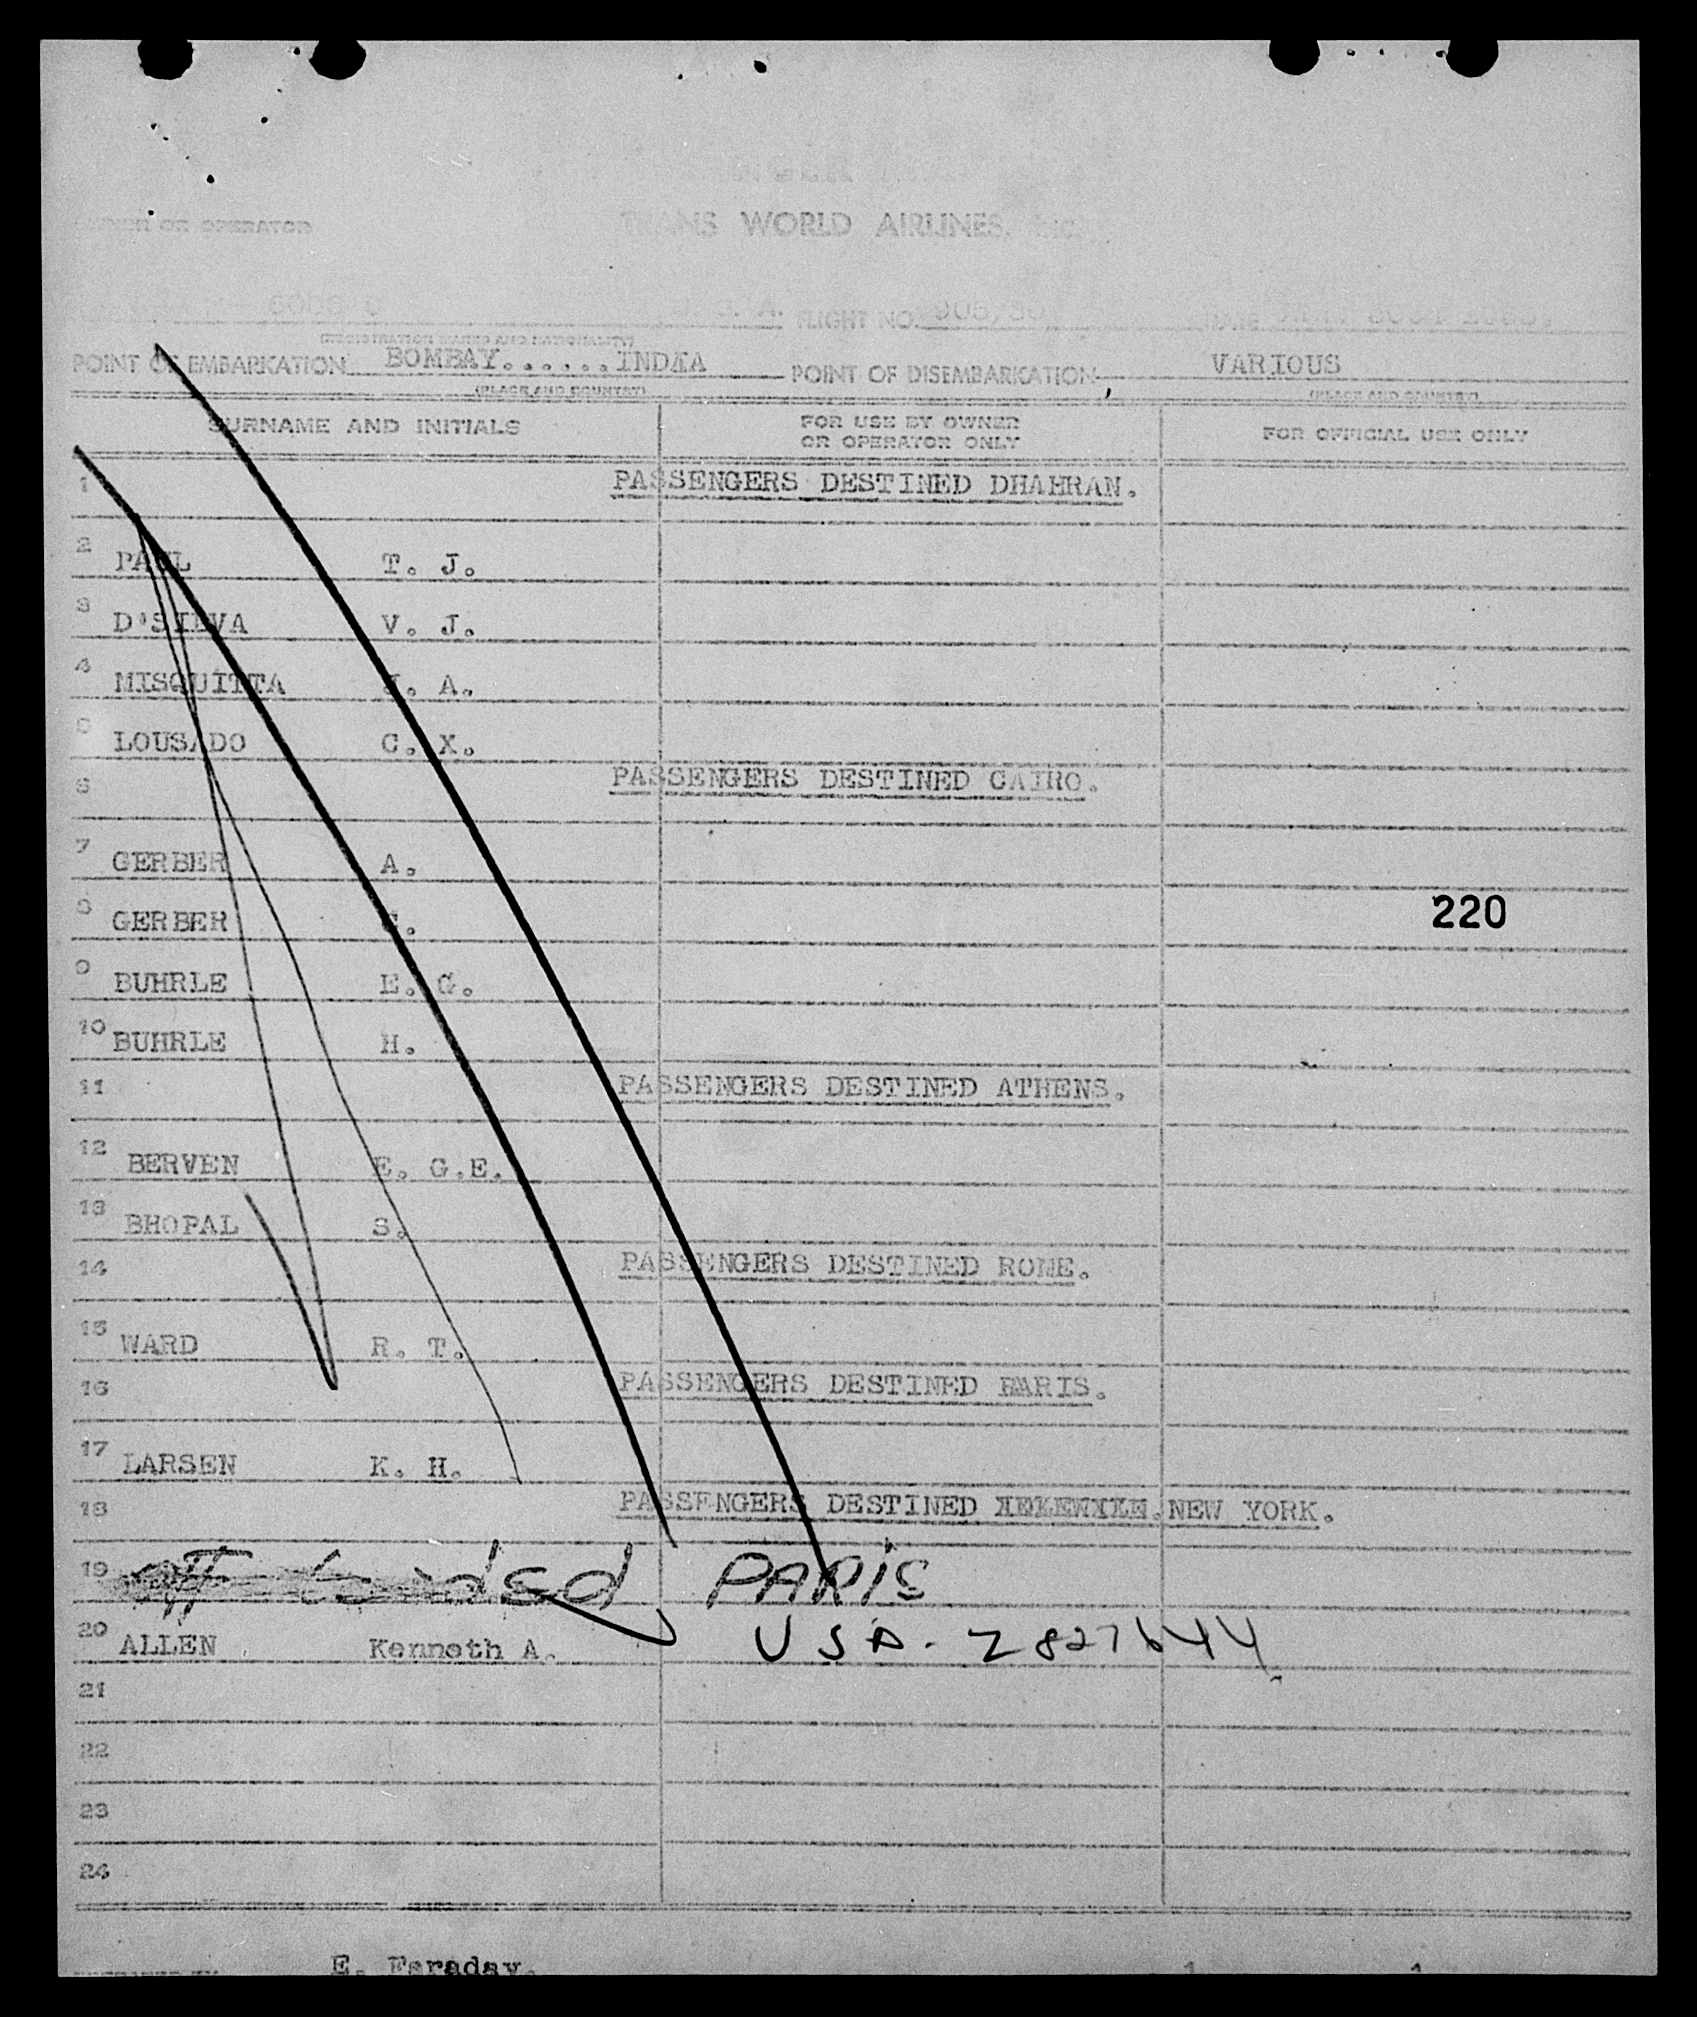 OR OPERATOR TRANS WORLD AIRLINES, Inc.
FLIGHT NO.
(REGISTRATION MARKS AND NATIONALITY)
POINT OF EMBARKATION BOMBAY......INDIA POINT OF DISEMBARKATION VARIOUS
(PLACE AND COUNTRY) (PLACE AND COUNTRY)
SURNAME AND INITIALS FOR USE BY OWNER OR OPERATOR ONLY FOR OFFICIAL USE ONLY
1 PASSENGERS DESTINED DHAHRAN.
2 PAUL T. J.
3 D'SILVA V. J.
4 MISQUITTA J. A.
5 LOUSADO C. X.
6 PASSENGERS DESTINED CAIRO.
7 GERBER A.
8 GERBER 220
9 BUHRLE E. G.
10 BUHRLE H.
11 PASSENGERS DESTINED ATHENS.
12 BERVEN E. G.E.
13 BHOPAL S.
14 PASSENGERS DESTINED ROME.
15 WARD R. T.
16 PASSENGERS DESTINED PARIS.
17 LARSEN K. H.
18 PASSENGERS DESTINED NEW YORK.
19 PARIS
20 ALLEN Kenneth A. USA. Z827644
21
22
23
24
E. Faraday.